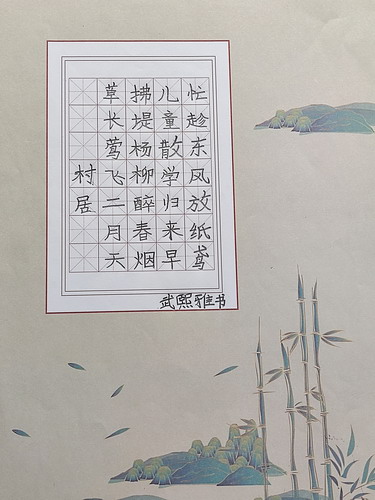 村居
草长莺飞二月天
拂堤杨柳醉春烟
儿童散学归来早
忙趁东风放纸鸢
武熙雅书